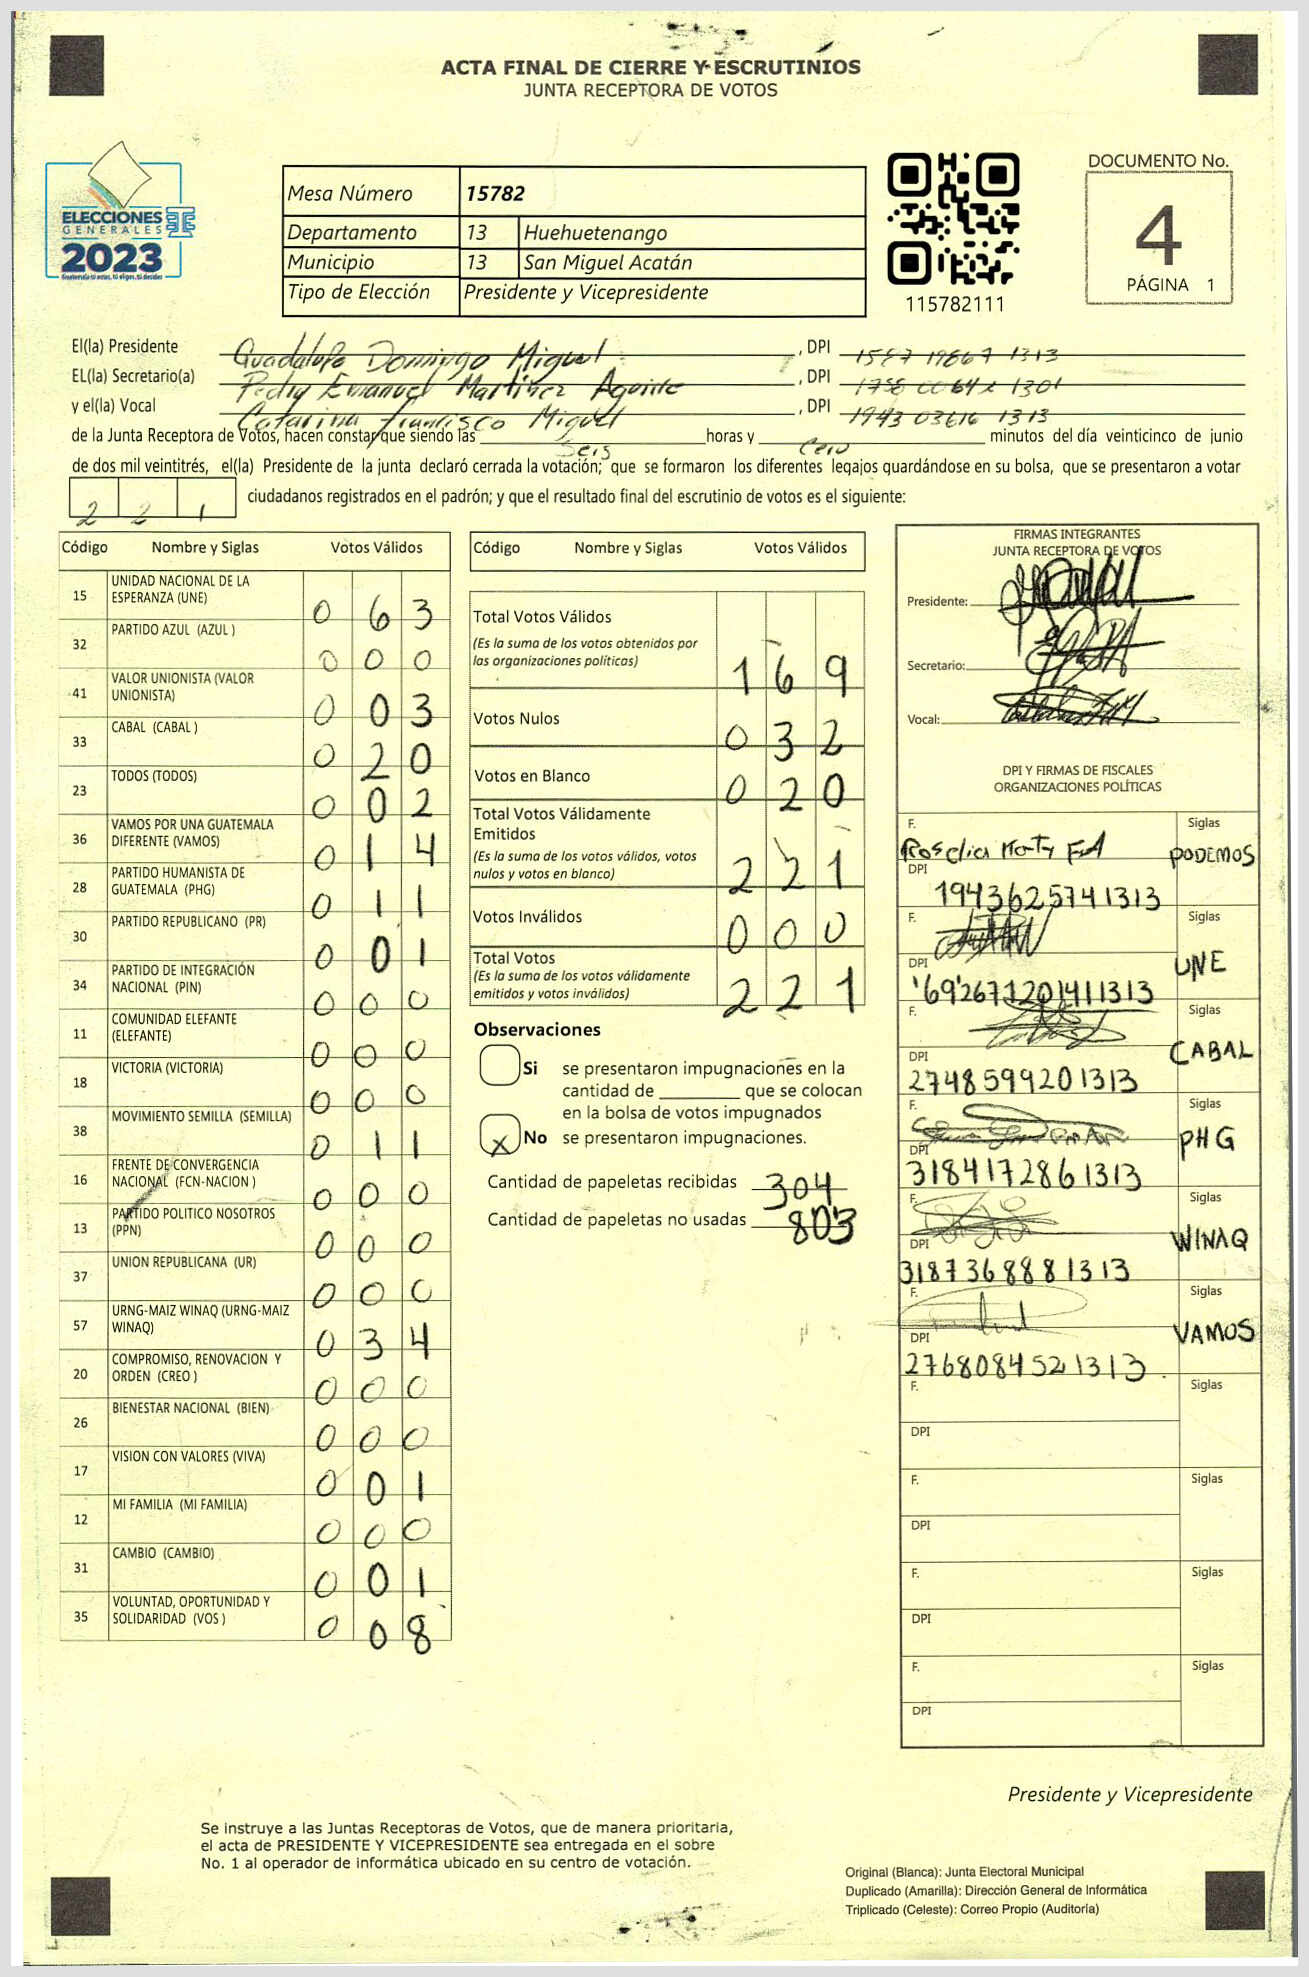 ACTA FINAL DE CIERRE Y ESCRUTINIOS
JUNTA RECEPTORA DE VOTOS
ELECCIONES
GENERALES
2023
Guatemala tú eres, tú eliges, tú decides
Mesa Número 15782
Departamento 13 Huehuetenango
Municipio 13 San Miguel Acatán
Tipo de Elección Presidente y Vicepresidente
115782111
DOCUMENTO No.
4
PÁGINA 1
El(la) Presidente Guadalupe Domingo Miguel, DPI 1587 19867 1313
EL(la) Secretario(a) Pedry Emanuel Martinez Aguirre, DPI 1313 1301
y el(la) Vocal Catarina Francisco Miguel, DPI 1943 03616 1313
de la Junta Receptora de Votos, hacen constar que siendo las Seis horas y Cero minutos del día veinticinco de junio
de dos mil veintitrés, el(la) Presidente de la junta declaró cerrada la votación; que se formaron los diferentes legajos guardándose en su bolsa, que se presentaron a votar
221 ciudadanos registrados en el padrón; y que el resultado final del escrutinio de votos es el siguiente:
Código Nombre y Siglas Votos Válidos
15 UNIDAD NACIONAL DE LA ESPERANZA (UNE) 0 6 3
32 PARTIDO AZUL (AZUL ) 0 0 0
41 VALOR UNIONISTA (VALOR UNIONISTA) 0 0 3
33 CABAL (CABAL ) 0 2 0
23 TODOS (TODOS) 0 0 2
36 VAMOS POR UNA GUATEMALA DIFERENTE (VAMOS) 0 1 4
28 PARTIDO HUMANISTA DE GUATEMALA (PHG) 0 1 1
30 PARTIDO REPUBLICANO (PR) 0 0 1
34 PARTIDO DE INTEGRACIÓN NACIONAL (PIN) 0 0 0
11 COMUNIDAD ELEFANTE (ELEFANTE) 0 0 0
18 VICTORIA (VICTORIA) 0 0 0
38 MOVIMIENTO SEMILLA (SEMILLA) 0 1 1
16 FRENTE DE CONVERGENCIA NACIONAL (FCN-NACION ) 0 0 0
13 PARTIDO POLITICO NOSOTROS (PPN) 0 0 0
37 UNION REPUBLICANA (UR) 0 0 0
57 URNG-MAIZ WINAQ (URNG-MAIZ WINAQ) 0 3 4
20 COMPROMISO, RENOVACION Y ORDEN (CREO ) 0 0 0
26 BIENESTAR NACIONAL (BIEN) 0 0 0
17 VISION CON VALORES (VIVA) 0 0 1
12 MI FAMILIA (MI FAMILIA) 0 0 0
31 CAMBIO (CAMBIO) 0 0 1
35 VOLUNTAD, OPORTUNIDAD Y SOLIDARIDAD (VOS ) 0 0 8
Código Nombre y Siglas Votos Válidos
Total Votos Válidos 1 6 9
(Es la suma de los votos obtenidos por
las organizaciones políticas)
Votos Nulos 0 3 2
Votos en Blanco 0 2 0
Total Votos Válidamente
Emitidos 2 2 1
(Es la suma de los votos válidos, votos
nulos y votos en blanco)
Votos Inválidos 0 0 0
Total Votos 2 2 1
(Es la suma de los votos válidamente
emitidos y votos inválidos)
Observaciones
Si se presentaron impugnaciones en la
cantidad de ________ que se colocan
en la bolsa de votos impugnados
X No se presentaron impugnaciones.
Cantidad de papeletas recibidas 304
Cantidad de papeletas no usadas 803
FIRMAS INTEGRANTES
JUNTA RECEPTORA DE VOTOS
Presidente:
Secretario:
Vocal:
DPI Y FIRMAS DE FISCALES
ORGANIZACIONES POLÍTICAS
F. Siglas
PODEMOS
DPI
1943625741313
F. Siglas
UNE
DPI
F. Siglas
CABAL
DPI
2748599201313
F. Siglas
PHG
DPI
3184172861313
F. Siglas
WINAQ
DPI
3187368881313
F. Siglas
VAMOS
DPI
2768084521313
F. Siglas
DPI
F. Siglas
DPI
F. Siglas
DPI
F. Siglas
DPI
Presidente y Vicepresidente
Se instruye a las Juntas Receptoras de Votos, que de manera prioritaria,
el acta de PRESIDENTE Y VICEPRESIDENTE sea entregada en el sobre
No. 1 al operador de informática ubicado en su centro de votación.
Original (Blanca): Junta Electoral Municipal
Duplicado (Amarilla): Dirección General de Informática
Triplicado (Celeste): Correo Propio (Auditoría)